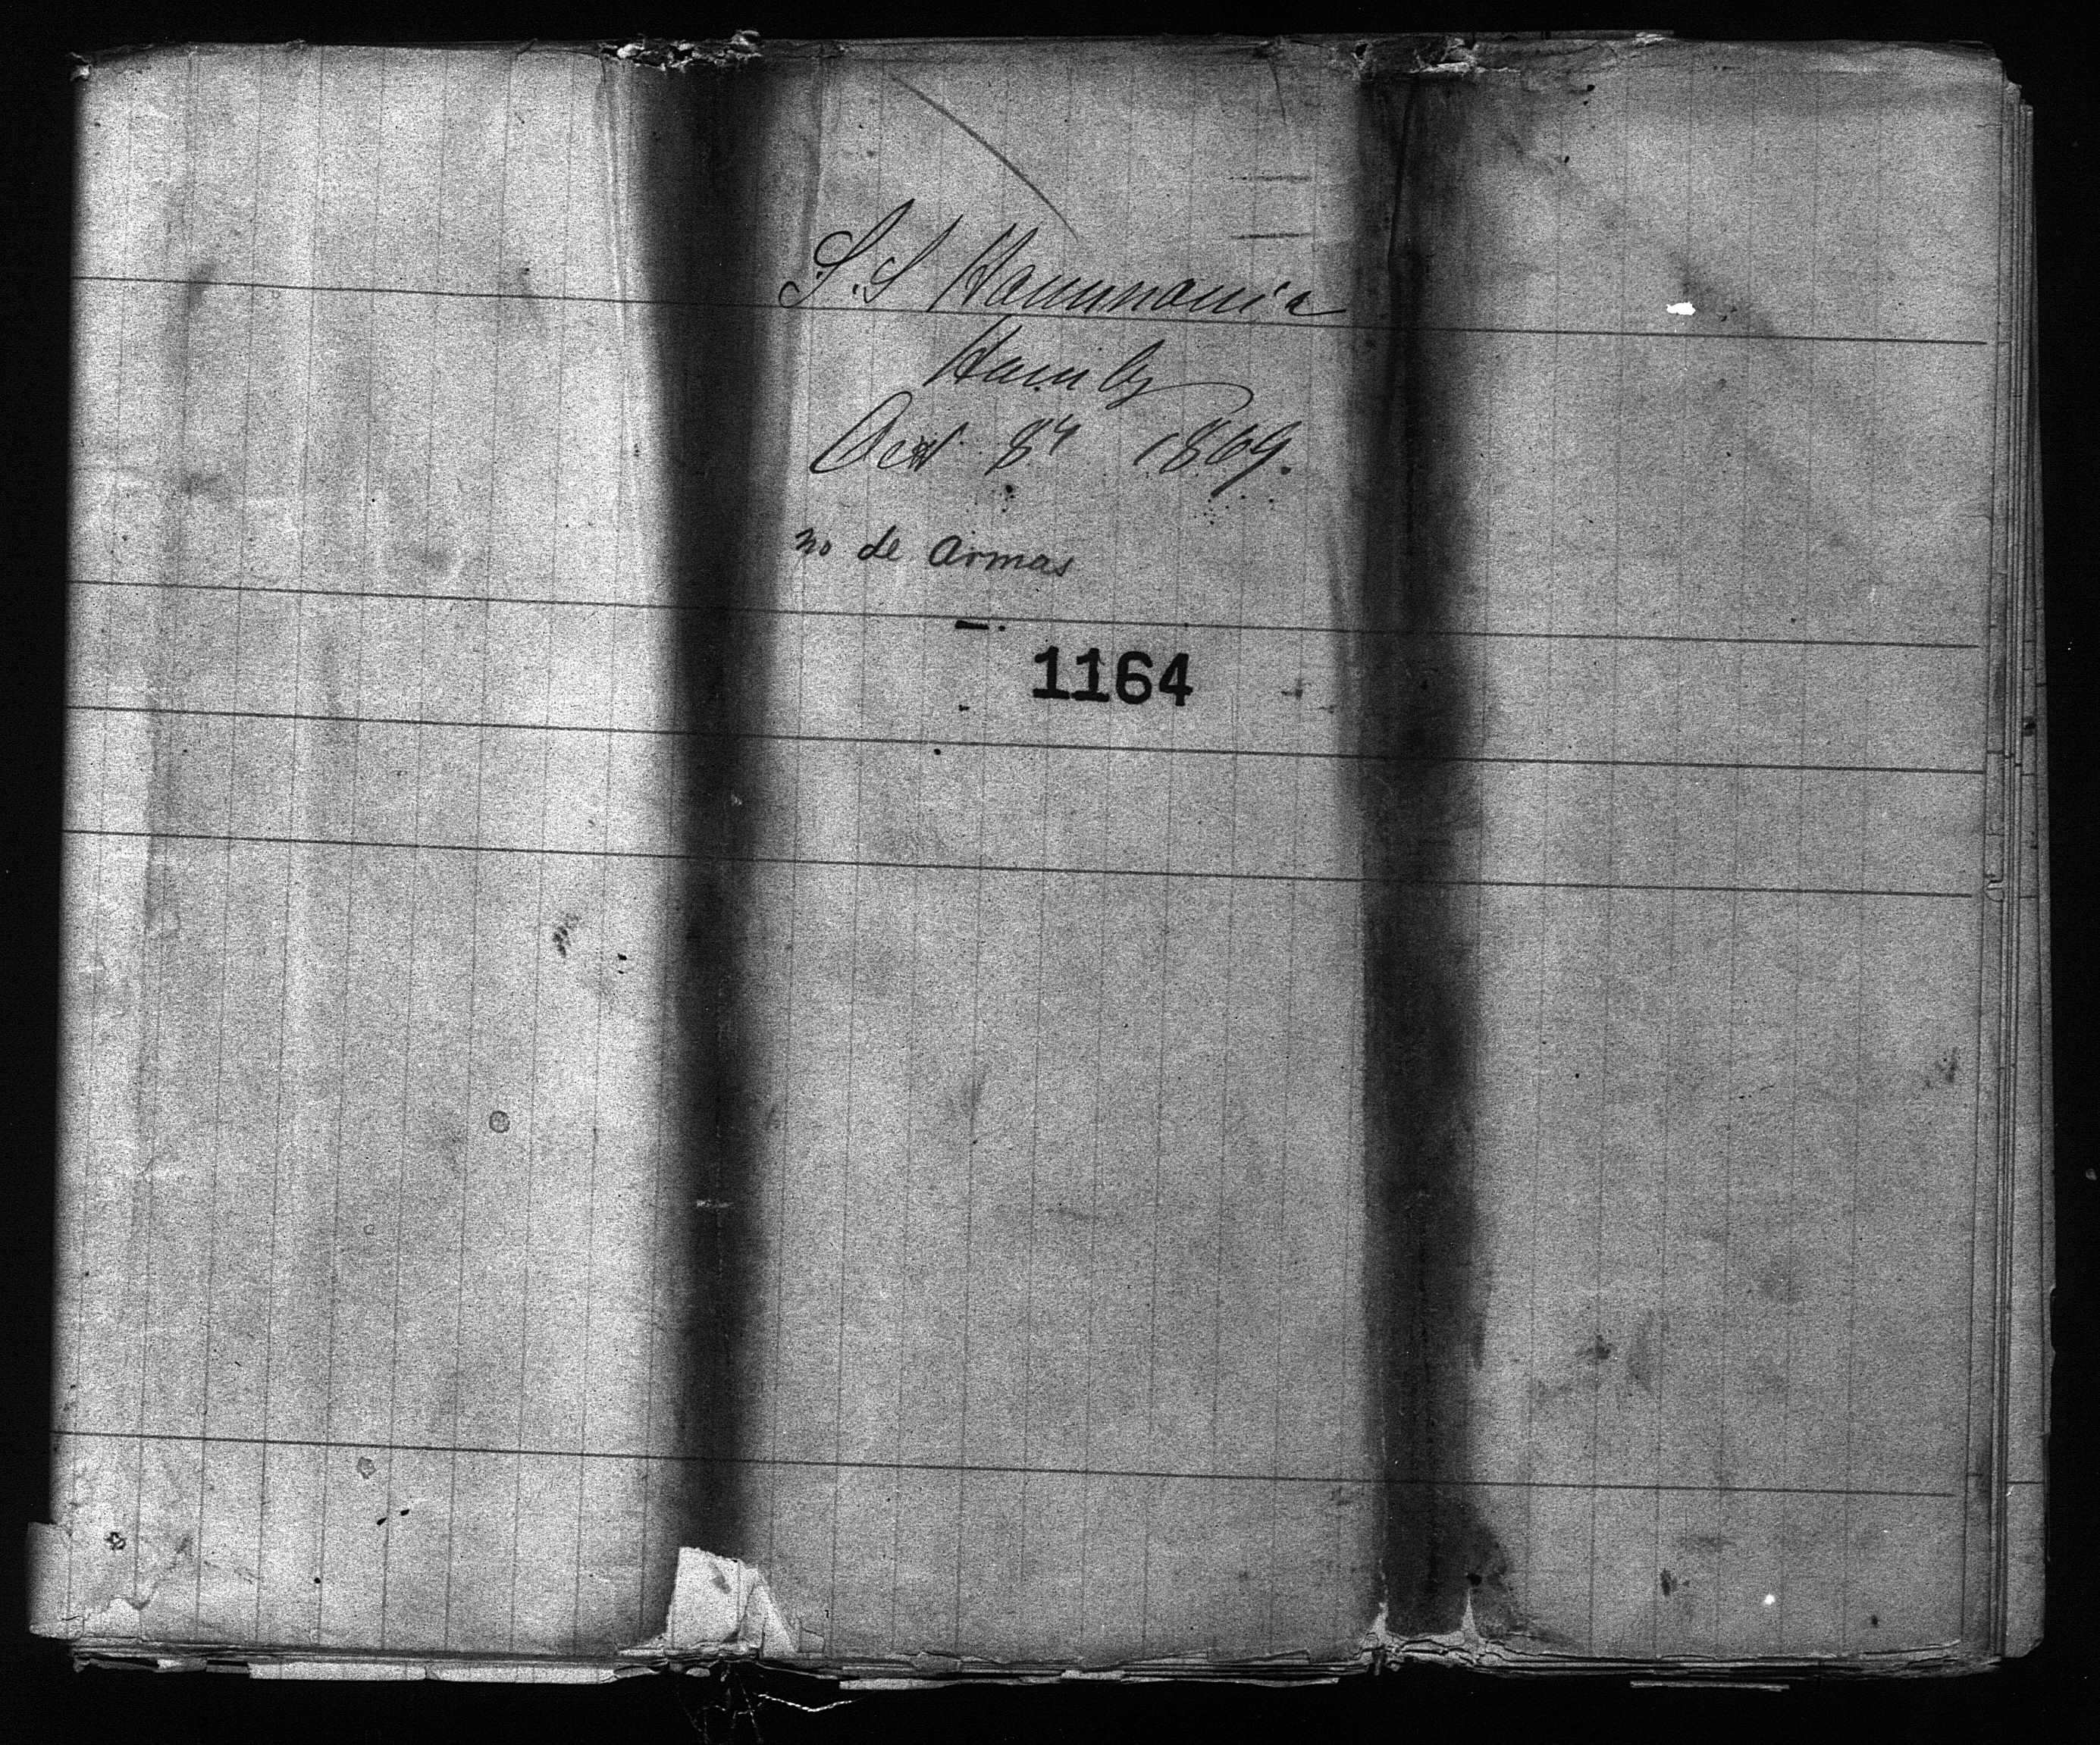 S.S Hammonia
Hambg
Oct 8th 1869.
no de armas
1164